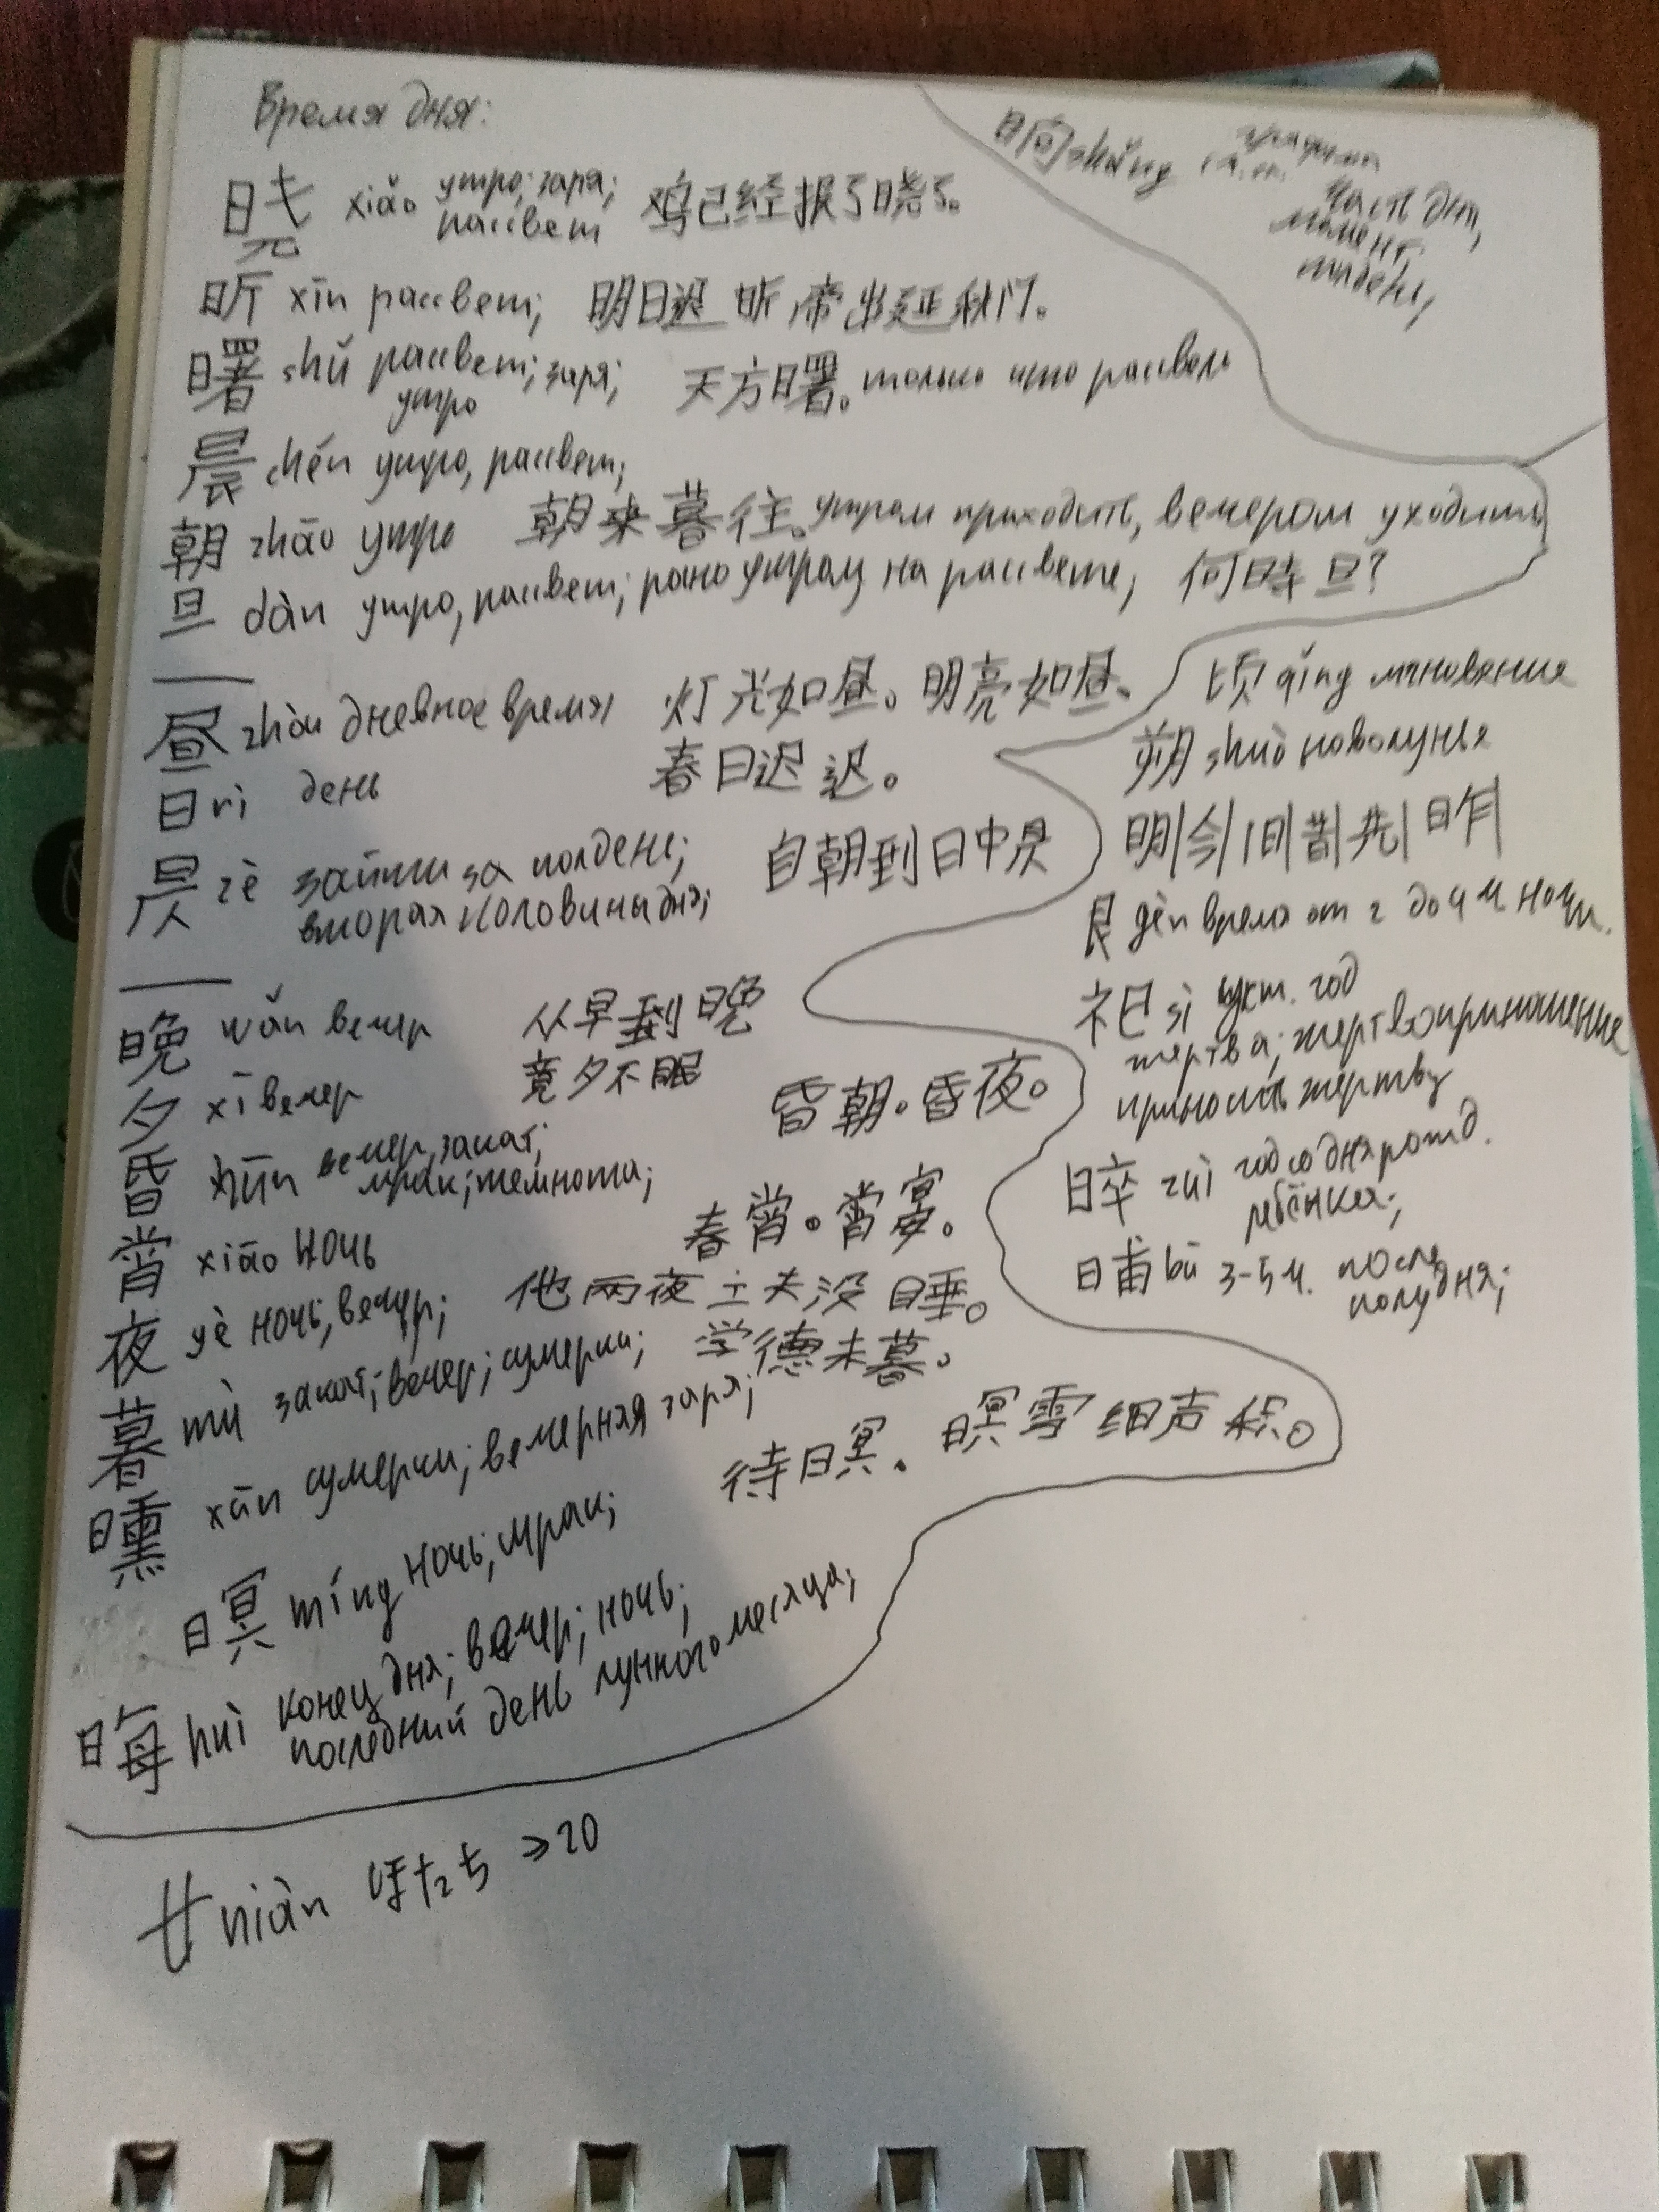 Время дня:
晓 xiǎo утро; заря; рассвет 鸡已经报了晓了。
昕 xīn рассвет; 明日迟昕帝出延秋门。
曙 shǔ рассвет; заря; утро 天方曙。только что рассвело
晨 chén утро, рассвет;
朝 zhāo утро 朝来暮往。утром приходить, вечером уходить
旦 dàn утро, рассвет; рано утром, на рассвете; 何時旦?
昼 zhòu дневное время 灯光如昼。明亮如昼。
日 rì день 春日迟迟。
昃 zè зайти за полдень; вторая половина дня; 自朝到日中昃
晚 wǎn вечер 从早到晚
夕 xī вечер 竟夕不眠
昏 hūn вечер, закат; мрак; темнота; 昏朝。昏夜。
宵 xiāo ночь 春宵。宵宴。
夜 yè ночь, вечер; 他两夜工夫没睡。
暮 mù закат; вечер; сумерки; 学德未暮。
曛 xūn сумерки; вечерняя заря;
暝 míng ночь; мрак; 待暝. 暝雪细声积。
晦 huì конец дня; вечер; ночь;
последний день лунного месяца;
廿 niàn はたち => 20
晌 shǎng
часть дня,
момент.
полдень,
顷 qǐng мгновение
朔 shuò новолунья
明|今|旧|昔|先|昨|
艮 gèn время от 2 до 4 ч ночи.
祀 sì год
жертва; жертвоприношение
приносить жертву
晬 zuì год со дня рожд.
ребёнка;
晡 bū 3-5 ч. после
полудня;